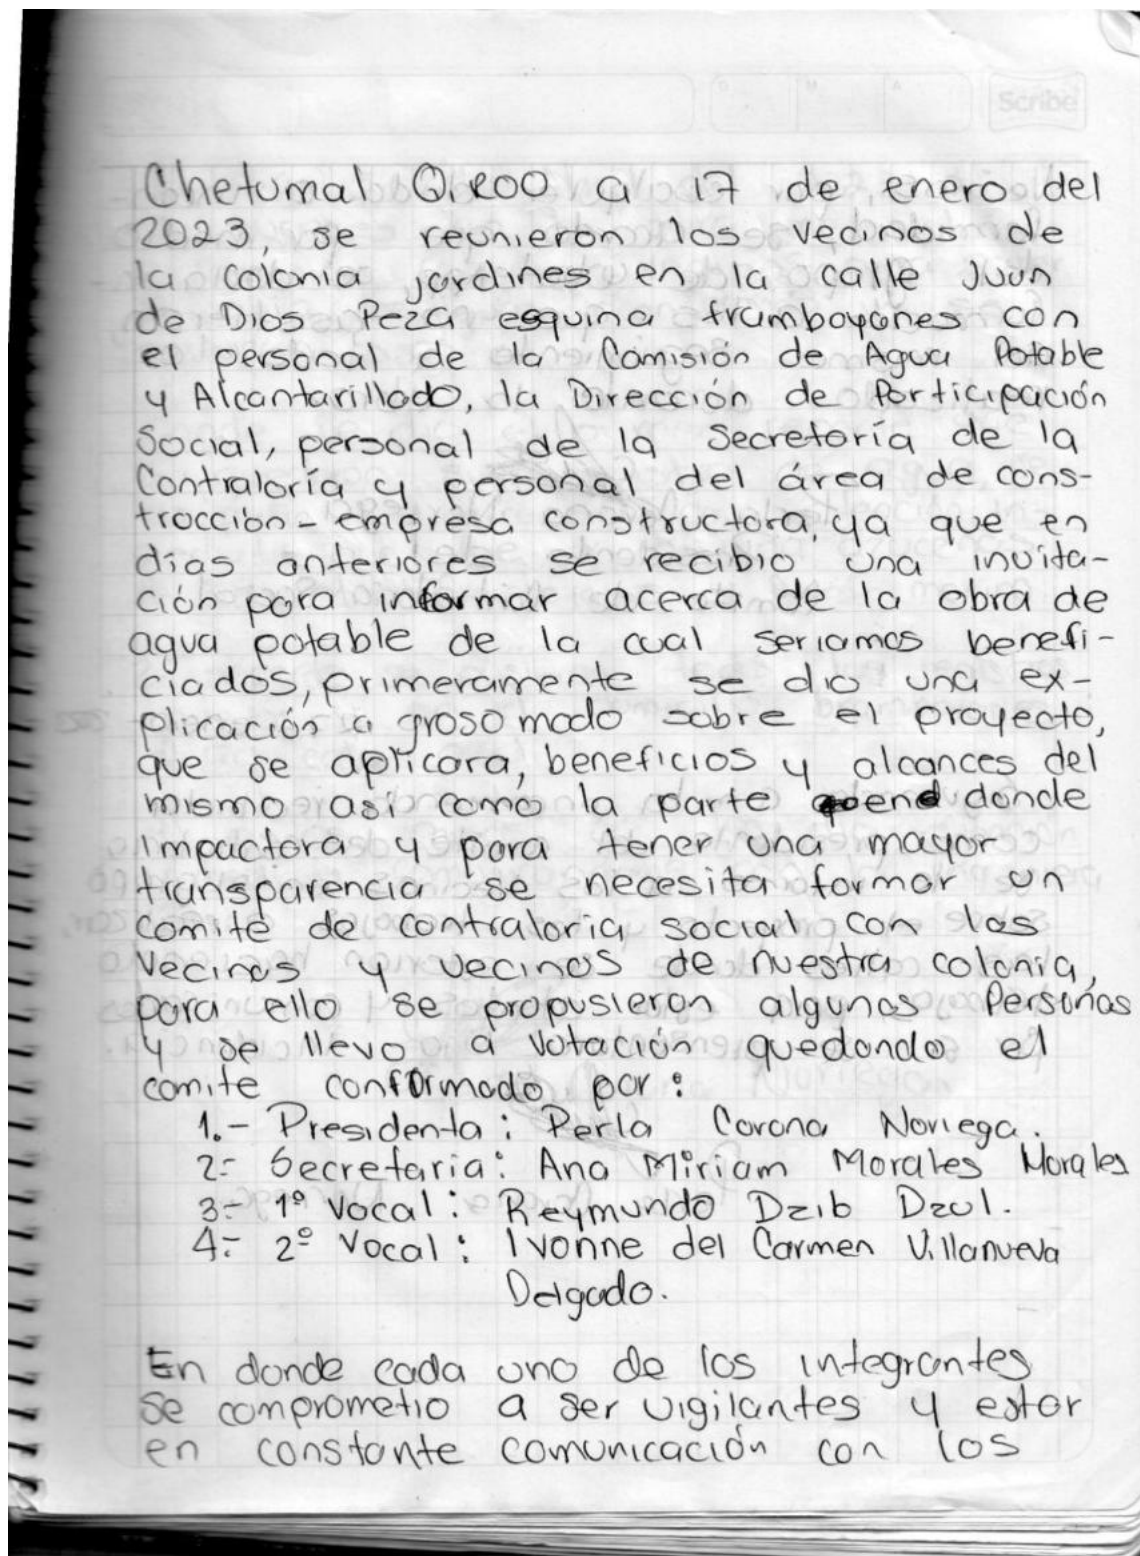 Scribe
Chetumal Q.ROO a 17 de enero del
2023, se reunieron los vecinos de
la colonia jardines en la calle Juan
de Dios Peza esquina framboyanes con
el personal de la Comisión de Agua Potable
y Alcantarillado, la Dirección de Participación
Social, personal de la Secretaría de la
Contraloría y personal del área de cons-
trucción - empresa constructora, ya que en
días anteriores se recibio una invita-
ción para informar acerca de la obra de
agua potable de la cual seriamos benefi-
ciados, primeramente se dio una ex-
plicación a groso modo sobre el proyecto,
que se aplicara, beneficios y alcances del
mismo asi como la parte en donde
impactara y para tener una mayor
transparencia se necesita formar un
comité de contraloria social con las
vecinas y vecinos de nuestra colonia,
para ello se propusieron algunas Personas
y se llevo a votación quedando el
comite conformado por:
1.- Presidenta: Perla Corona Noriega.
2.- Secretaria: Ana Miriam Morales Morales
3.- 1º Vocal: Reymundo Dzib Dzul.
4.- 2º Vocal: Ivonne del Carmen Villanueva
Delgado.
En donde cada uno de los integrantes
se comprometio a ser vigilantes y estar
en constante comunicación con los